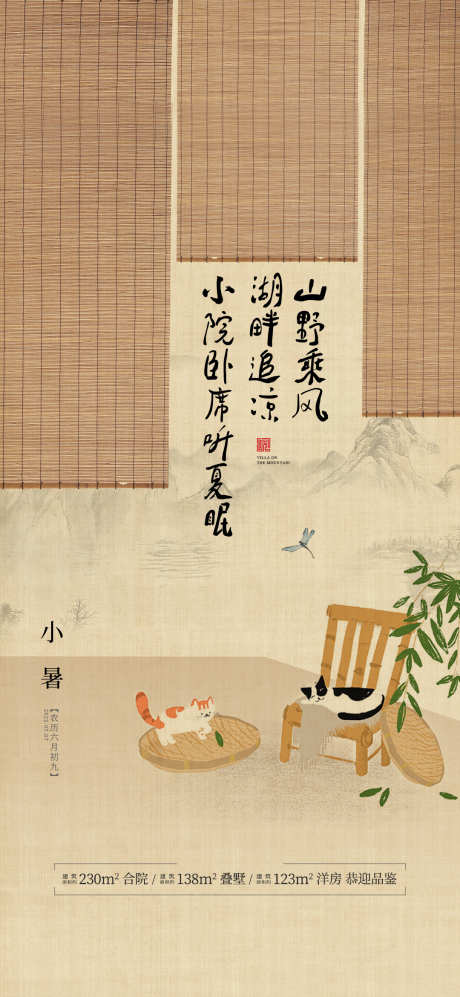 山野乘风
湖畔追凉
小院卧席听夏眠
VILLA ON
THE MOUNTAIN
小暑
【农历六月初九】
2022.07.07
建筑面积约230m² 合院 / 建筑面积约138m² 叠墅 / 建筑面积约123m² 洋房 恭迎品鉴